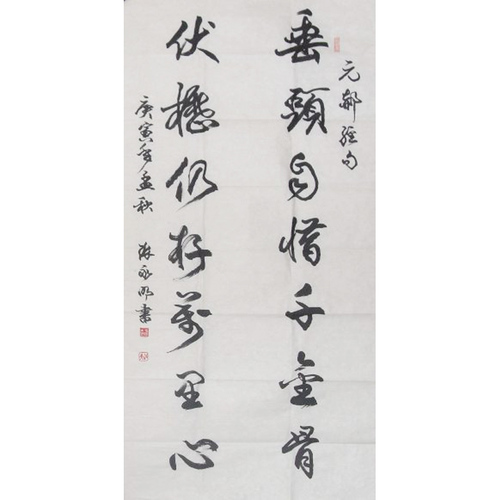 元郝經句
垂頭自惜千金骨
伏櫪仍存萬里心
庚寅年孟秋 永明書